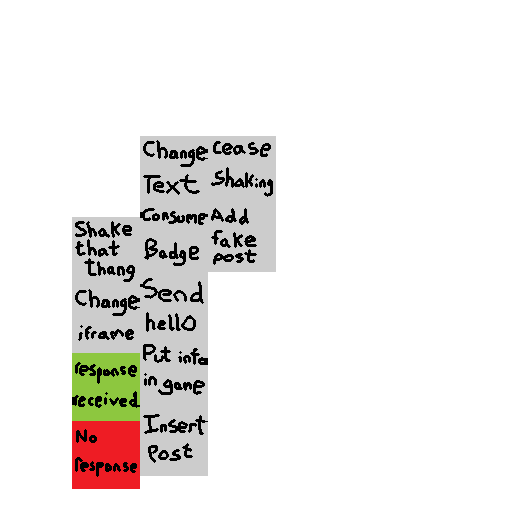 Shake
that
thang
Change
iframe
response
received
No
response
Change
Text
Consume
Badge
Send
hello
Put info
in game
Insert
Post
cease
shaking
Add
fake
post